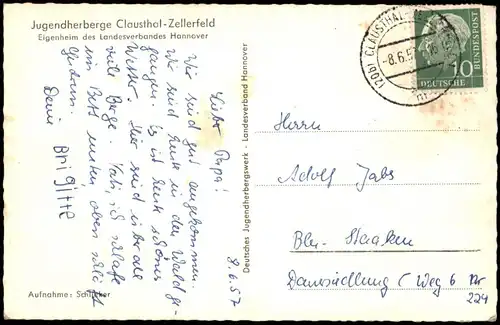 Jugendherberge Clausthal-Zellerfeld
Eigenheim des Landesverbandes Hannover
8.6.57
Lieber Papa!
Wir sind gut angekommen.
Wir sind heute in den Wald ge-
gangen. Es ist heute schönes
Wetter. Hier sind
viele Berge. Vati, ich schlafe
im Bett unten oben schläft
Gudrun.
Deine Brigitte
Aufnahme: Schicker
Deutsches Jugendherbergswerk - Landesverband Hannover
(20b) CLAUSTHAL-
-8.6.5
DEUTSCHE BUNDESPOST
10
Herrn
Adolf Jabs
Bln-Staaken
Damsiedlung (Weg 6 Nr
224